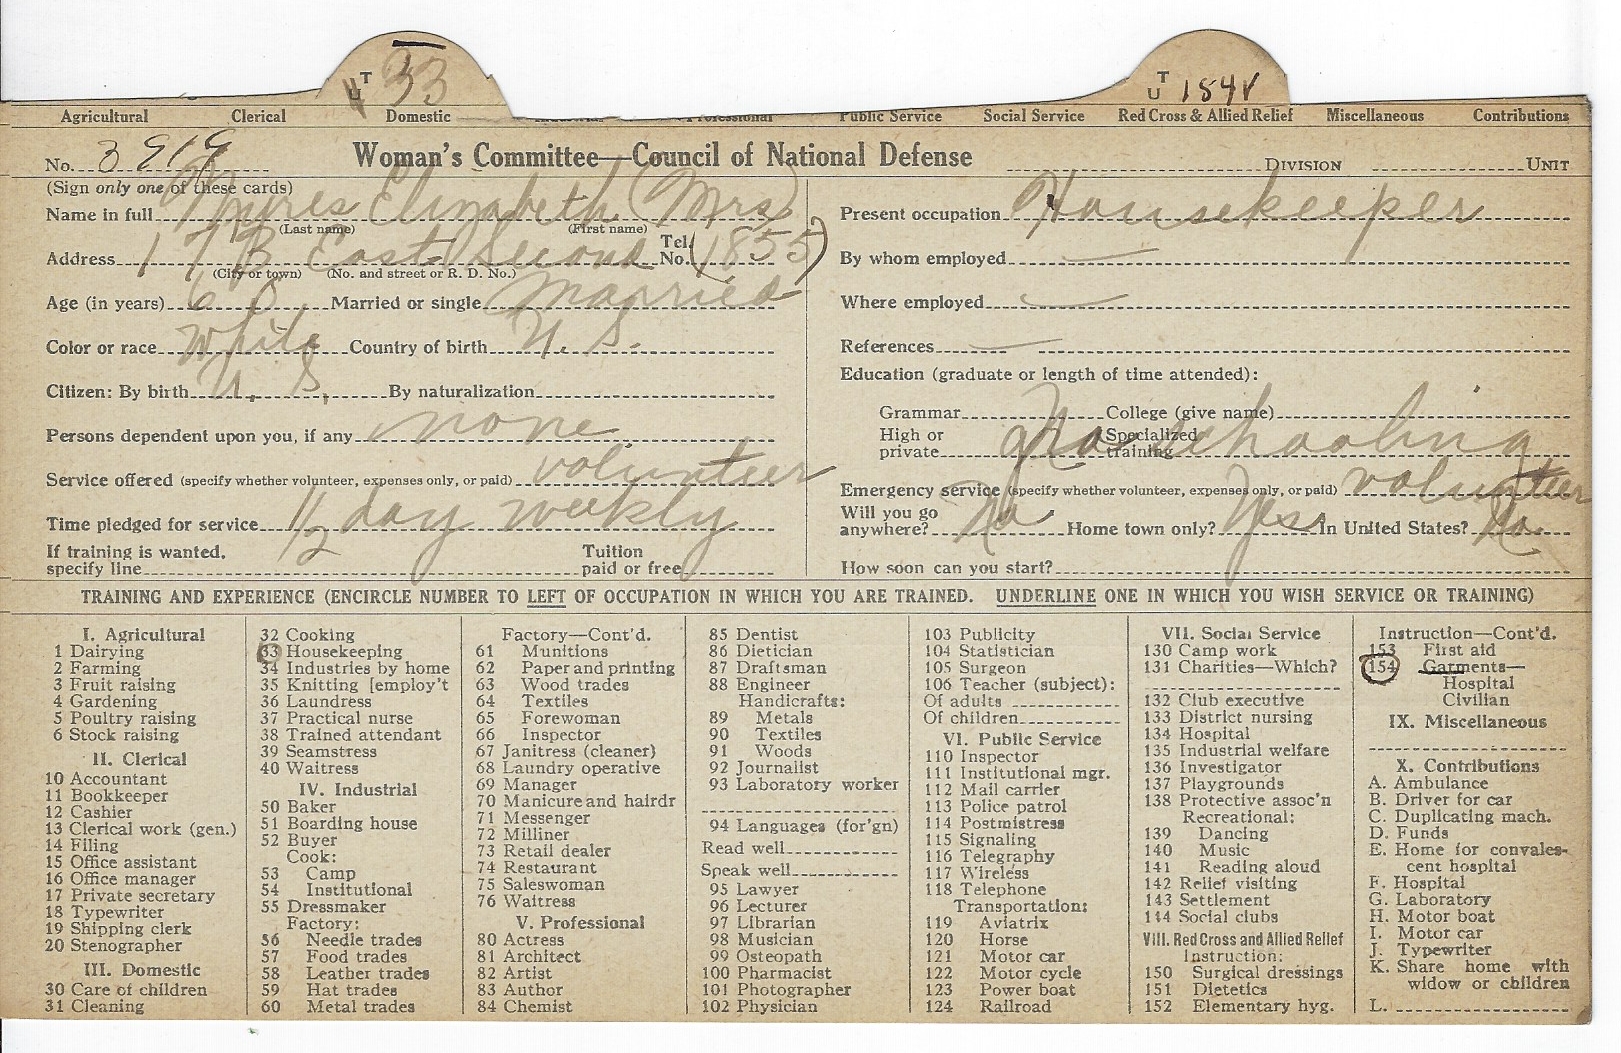 T
U 33
T
U 154V
Agricultural Clerical Domestic Industrial Professional Public Service Social Service Red Cross & Allied Relief Miscellaneous Contributions
No. 3919 Woman's Committee—Council of National Defense DIVISION UNIT
(Sign only one of these cards)
Name in full Myres Elizabeth (Mrs)
(Last name) (First name)
Address 17 B East Second Tel. No. (1855)
(City or town) (No. and street or R. D. No.)
Age (in years) 60 Married or single Married
Color or race White Country of birth U. S.
Citizen: By birth U. S. By naturalization
Persons dependent upon you, if any none
Service offered (specify whether volunteer, expenses only, or paid) volunteer
Time pledged for service 1/2 day weekly
If training is wanted, specify line Tuition paid or free
Present occupation Housekeeper
By whom employed —
Where employed —
References —
Education (graduate or length of time attended):
Grammar College (give name)
High or private Specialized training
No schooling
Emergency service (specify whether volunteer, expenses only, or paid) volunteer
Will you go anywhere? No Home town only? Yes In United States? No
How soon can you start?
TRAINING AND EXPERIENCE (ENCIRCLE NUMBER TO LEFT OF OCCUPATION IN WHICH YOU ARE TRAINED. UNDERLINE ONE IN WHICH YOU WISH SERVICE OR TRAINING)
I. Agricultural
1 Dairying
2 Farming
3 Fruit raising
4 Gardening
5 Poultry raising
6 Stock raising
II. Clerical
10 Accountant
11 Bookkeeper
12 Cashier
13 Clerical work (gen.)
14 Filing
15 Office assistant
16 Office manager
17 Private secretary
18 Typewriter
19 Shipping clerk
20 Stenographer
III. Domestic
30 Care of children
31 Cleaning
32 Cooking
33 Housekeeping
34 Industries by home
35 Knitting [employ't
36 Laundress
37 Practical nurse
38 Trained attendant
39 Seamstress
40 Waitress
IV. Industrial
50 Baker
51 Boarding house
52 Buyer
Cook:
53 Camp
54 Institutional
55 Dressmaker
Factory:
56 Needle trades
57 Food trades
58 Leather trades
59 Hat trades
60 Metal trades
Factory—Cont'd.
61 Munitions
62 Paper and printing
63 Wood trades
64 Textiles
65 Forewoman
66 Inspector
67 Janitress (cleaner)
68 Laundry operative
69 Manager
70 Manicure and hairdr
71 Messenger
72 Milliner
73 Retail dealer
74 Restaurant
75 Saleswoman
76 Waitress
V. Professional
80 Actress
81 Architect
82 Artist
83 Author
84 Chemist
85 Dentist
86 Dietician
87 Draftsman
88 Engineer
Handicrafts:
89 Metals
90 Textiles
91 Woods
92 Journalist
93 Laboratory worker
94 Languages (for'gn)
Read well
Speak well
95 Lawyer
96 Lecturer
97 Librarian
98 Musician
99 Osteopath
100 Pharmacist
101 Photographer
102 Physician
103 Publicity
104 Statistician
105 Surgeon
106 Teacher (subject):
Of adults
Of children
VI. Public Service
110 Inspector
111 Institutional mgr.
112 Mail carrier
113 Police patrol
114 Postmistress
115 Signaling
116 Telegraphy
117 Wireless
118 Telephone
Transportation:
119 Aviatrix
120 Horse
121 Motor car
122 Motor cycle
123 Power boat
124 Railroad
VII. Social Service
130 Camp work
131 Charities—Which?
132 Club executive
133 District nursing
134 Hospital
135 Industrial welfare
136 Investigator
137 Playgrounds
138 Protective assoc'n
Recreational:
139 Dancing
140 Music
141 Reading aloud
142 Relief visiting
143 Settlement
144 Social clubs
VIII. Red Cross and Allied Relief
Instruction:
150 Surgical dressings
151 Dietetics
152 Elementary hyg.
Instruction—Cont'd.
153 First aid
154 Garments—
Hospital
Civilian
IX. Miscellaneous
X. Contributions
A. Ambulance
B. Driver for car
C. Duplicating mach.
D. Funds
E. Home for convales-
cent hospital
F. Hospital
G. Laboratory
H. Motor boat
I. Motor car
J. Typewriter
K. Share home with
widow or children
L.